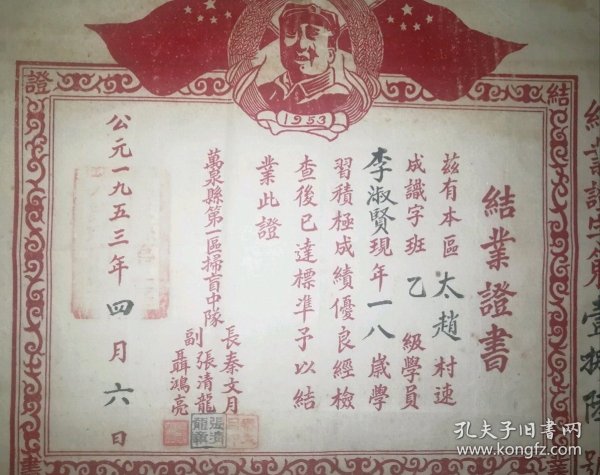 1953
結業證書
茲有本區太趙村速
成識字班乙級學員
李淑賢現年一八歲學
習積極成績優良經檢
查後已達標準予以結
業此證
萬泉縣第一區掃盲中隊
長秦文月
副張清龍
聶鴻亮
公元一九五三年四月六日
結
證
書
業
結業證字第壹拾陸號
孔夫子旧书网
www.kongfz.com